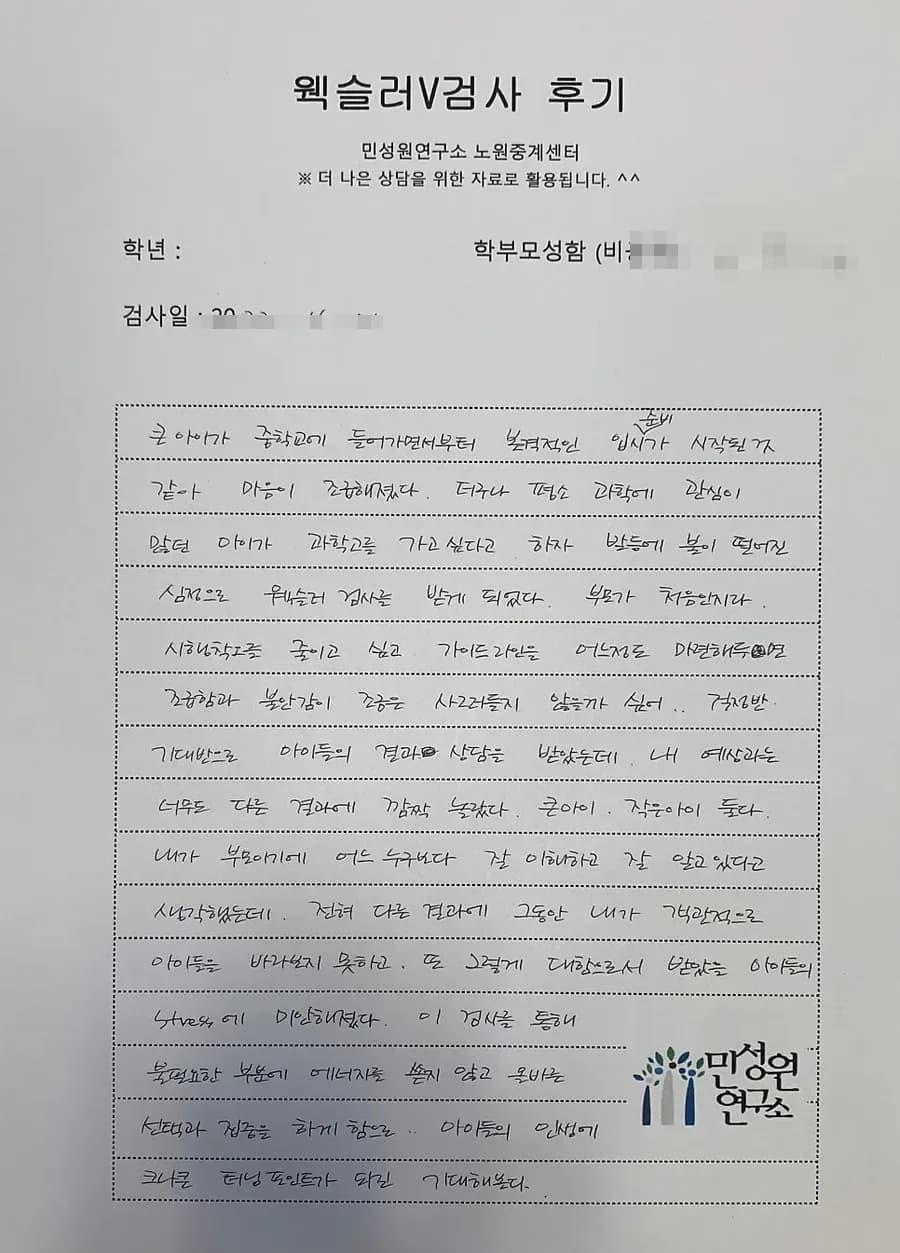 웩슬러V검사 후기
민성원연구소 노원중계센터
※ 더 나은 상담을 위한 자료로 활용됩니다. ^^
학년 :
학부모성함 (비
검사일 : 20
준비
큰 아이가 중학교에 들어가면서부터 본격적인 입시가 시작된 것
같아 마음이 조급해졌다. 더구나 평소 과학에 관심이
많던 아이가 과학고를 가고 싶다고 하자 발등에 불이 떨어진
심정으로 웩슬러 검사를 받게 되었다. 부모가 처음인지라.
시행착오를 줄이고 싶고 가이드라인을 어느정도 마련해두면
조급함과 불안감이 조금은 사그러들지 않을까 싶어.. 걱정반
기대반으로 아이들의 결과 상담을 받았는데. 내 예상과는
너무도 다른 결과에 깜짝 놀랐다. 큰아이. 작은아이 둘다.
내가 부모이기에 어느 누구보다 잘 이해하고 잘 알고 있다고
생각했는데. 전혀 다른 결과에 그동안 내가 객관적으로
아이들을 바라보지 못하고. 또 그렇게 대함으로서 받았을 아이들의
stress에 미안해졌다. 이 검사를 통해
불필요한 부분에 에너지를 쓰지 않고 올바른
선택과 집중을 하게 함으로.. 아이들의 인생에
크나큰 터닝포인트가 되길 기대해본다.
민성원
연구소